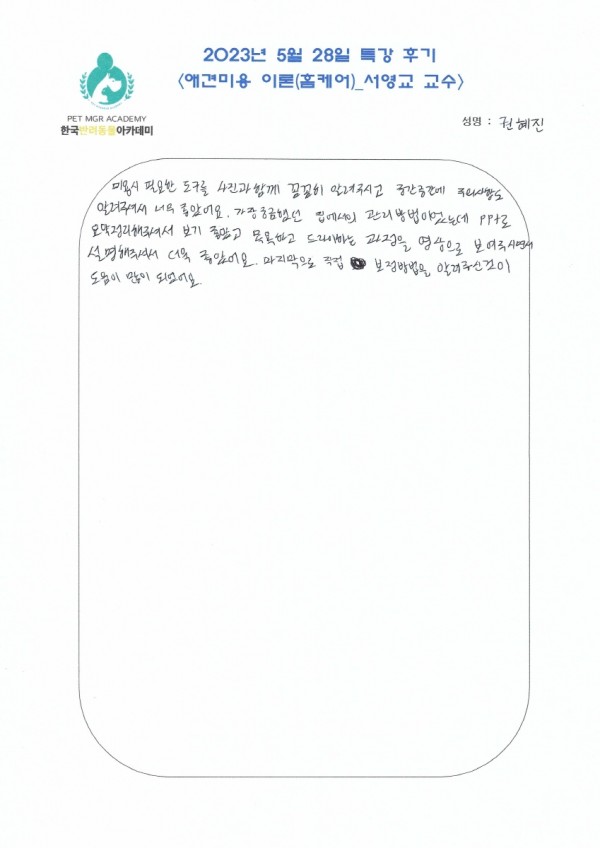 2023년 5월 28일 특강 후기
<애견미용 이론(홈케어)_서영교 교수>
PET MGR ACADEMY
한국반려동물아카데미
성명 : 권혜진
미용시 필요한 도구를 사진과 함께 꼼꼼히 알려주시고 중간중간에 주의사항도
알려주셔서 너무 좋았어요. 가장 궁금했던 집에서의 관리방법이었는데 ppt로
요약정리해주셔서 보기 좋았고 목욕하고 드라이하는 과정을 영상으로 보여주시면서
설명해주셔서 더욱 좋았어요. 마지막으로 직접 보정방법을 알려주신것이
도움이 많이 되었어요.